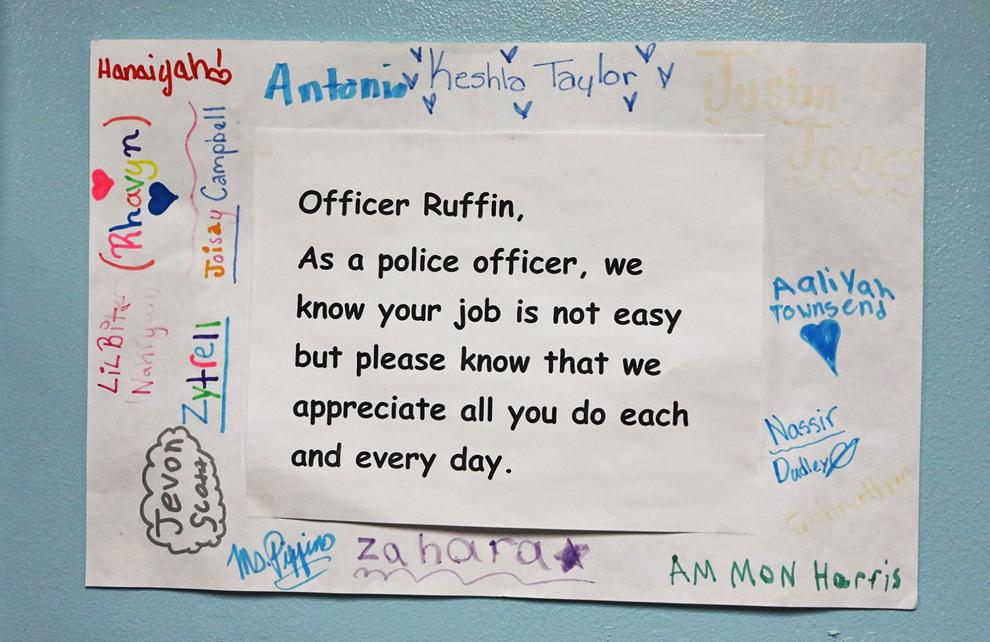 Hanaiyah
Antonio
Keshla Taylor
Justin
Jones
(Rhavyn)
Joisay Campbell
Officer Ruffin,
As a police officer, we
know your job is not easy
but please know that we
appreciate all you do each
and every day.
LiL Bit
Zytrell
Aaliyah
Townsend
Nassir
Dudley
Jevon
Ms. Piffino
zahara
AM MON Harris